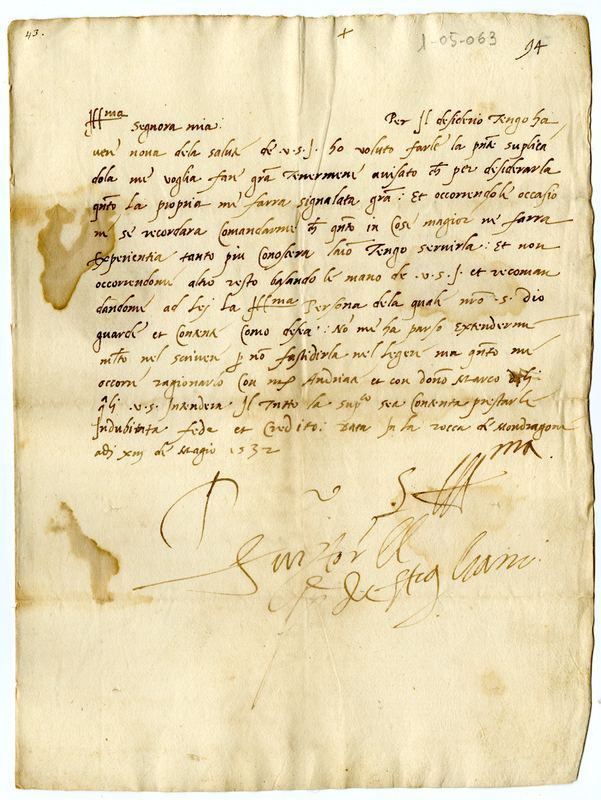 43.
+
1-05-063
94
Ill.ma
Segnora mia: Per Il desiderio Tengo ha
vere nova dela salute de .v.s.I. ho voluto farle la pnte suplica
dola me voglia fare gra Tenermene avisato ch per desiderarla
qnto La propria me farra signalata gra: Et occorrendole occasio
ne se recordara Comandarme ch qnto in Cose magior me farra
Experientia tanto piu Conoscera Tengo servirla: Et non
occorrendome altro resto basando le mano de .v.s.I. et recoman
dandome ad Lej La Ill.ma Persona dela quale nro .s. dio
guarde et Contente Como desea: No me ha parso Extenderme
mlto nel scivere p no fastidirla nel legere ma qnto me
occore ragionarlo Con Andriaa et con Marco
qli .v.s. Intendera Il Tutto la supco sea Contenta prestarle
Indubitata fede et Credito: Data In la rocca de Mondragone
adi xiij de Magio 1532
D v S Ill ma
Servitor
de Stigliani